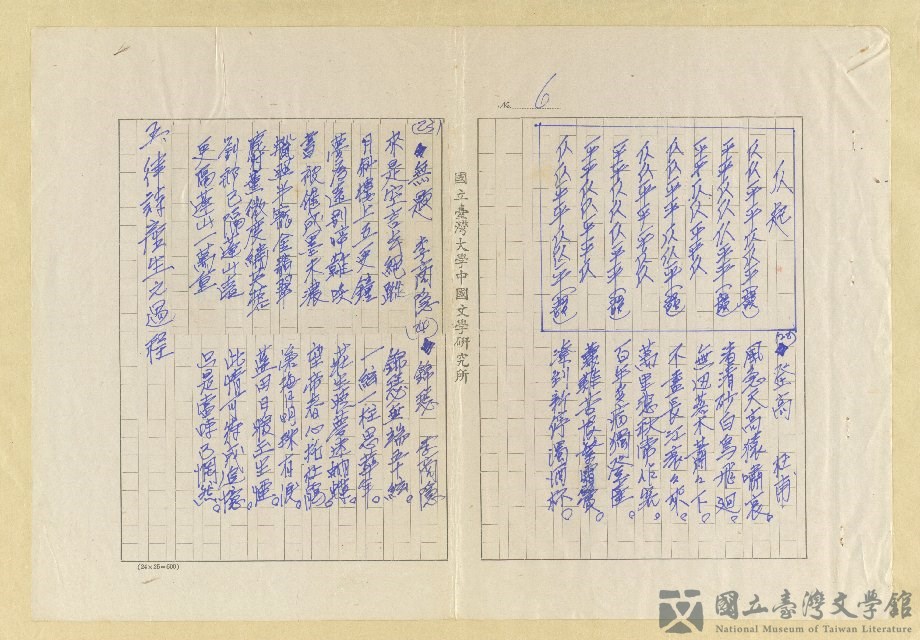 No. 6
仄起
仄仄平平仄仄平(韻)
平平仄仄仄平平(韻)
平平仄仄平平仄
仄仄平平仄仄平(韻)
仄仄平平平仄仄
平平仄仄仄平平(韻)
平平仄仄平平仄
仄仄平平仄仄平(韻)
登高 杜甫
風急天高猿嘯哀。
渚清砂白鳥飛迴。
無邊落木蕭々下。
不盡長江滾々來。
萬里悲秋常作客。
百年多病獨登臺。
艱難苦恨繁霜鬢。
潦倒新停濁酒杯。
國立臺灣大學中國文學研究所
(23) 無題 李商隱
來是空言去絕蹤
月斜樓上五更鐘
夢為遠別啼難喚
書被催成墨未濃
蠟照半籠金翡翠
麝薰微度繡芙蓉
劉郎已隔蓬山遠
更隔蓬山一萬重
(24) 錦瑟 李商隱
錦瑟無端五十絃。
一絃一柱思華年。
莊生曉夢迷蝴蝶。
望帝春心托杜鵑。
滄海月明珠有淚。
藍田日暖玉生煙。
此情可待成追憶。
只是當時已惘然。
五律詩產生之過程
(24×25=600)
國立臺灣文學館
National Museum of Taiwan Literature